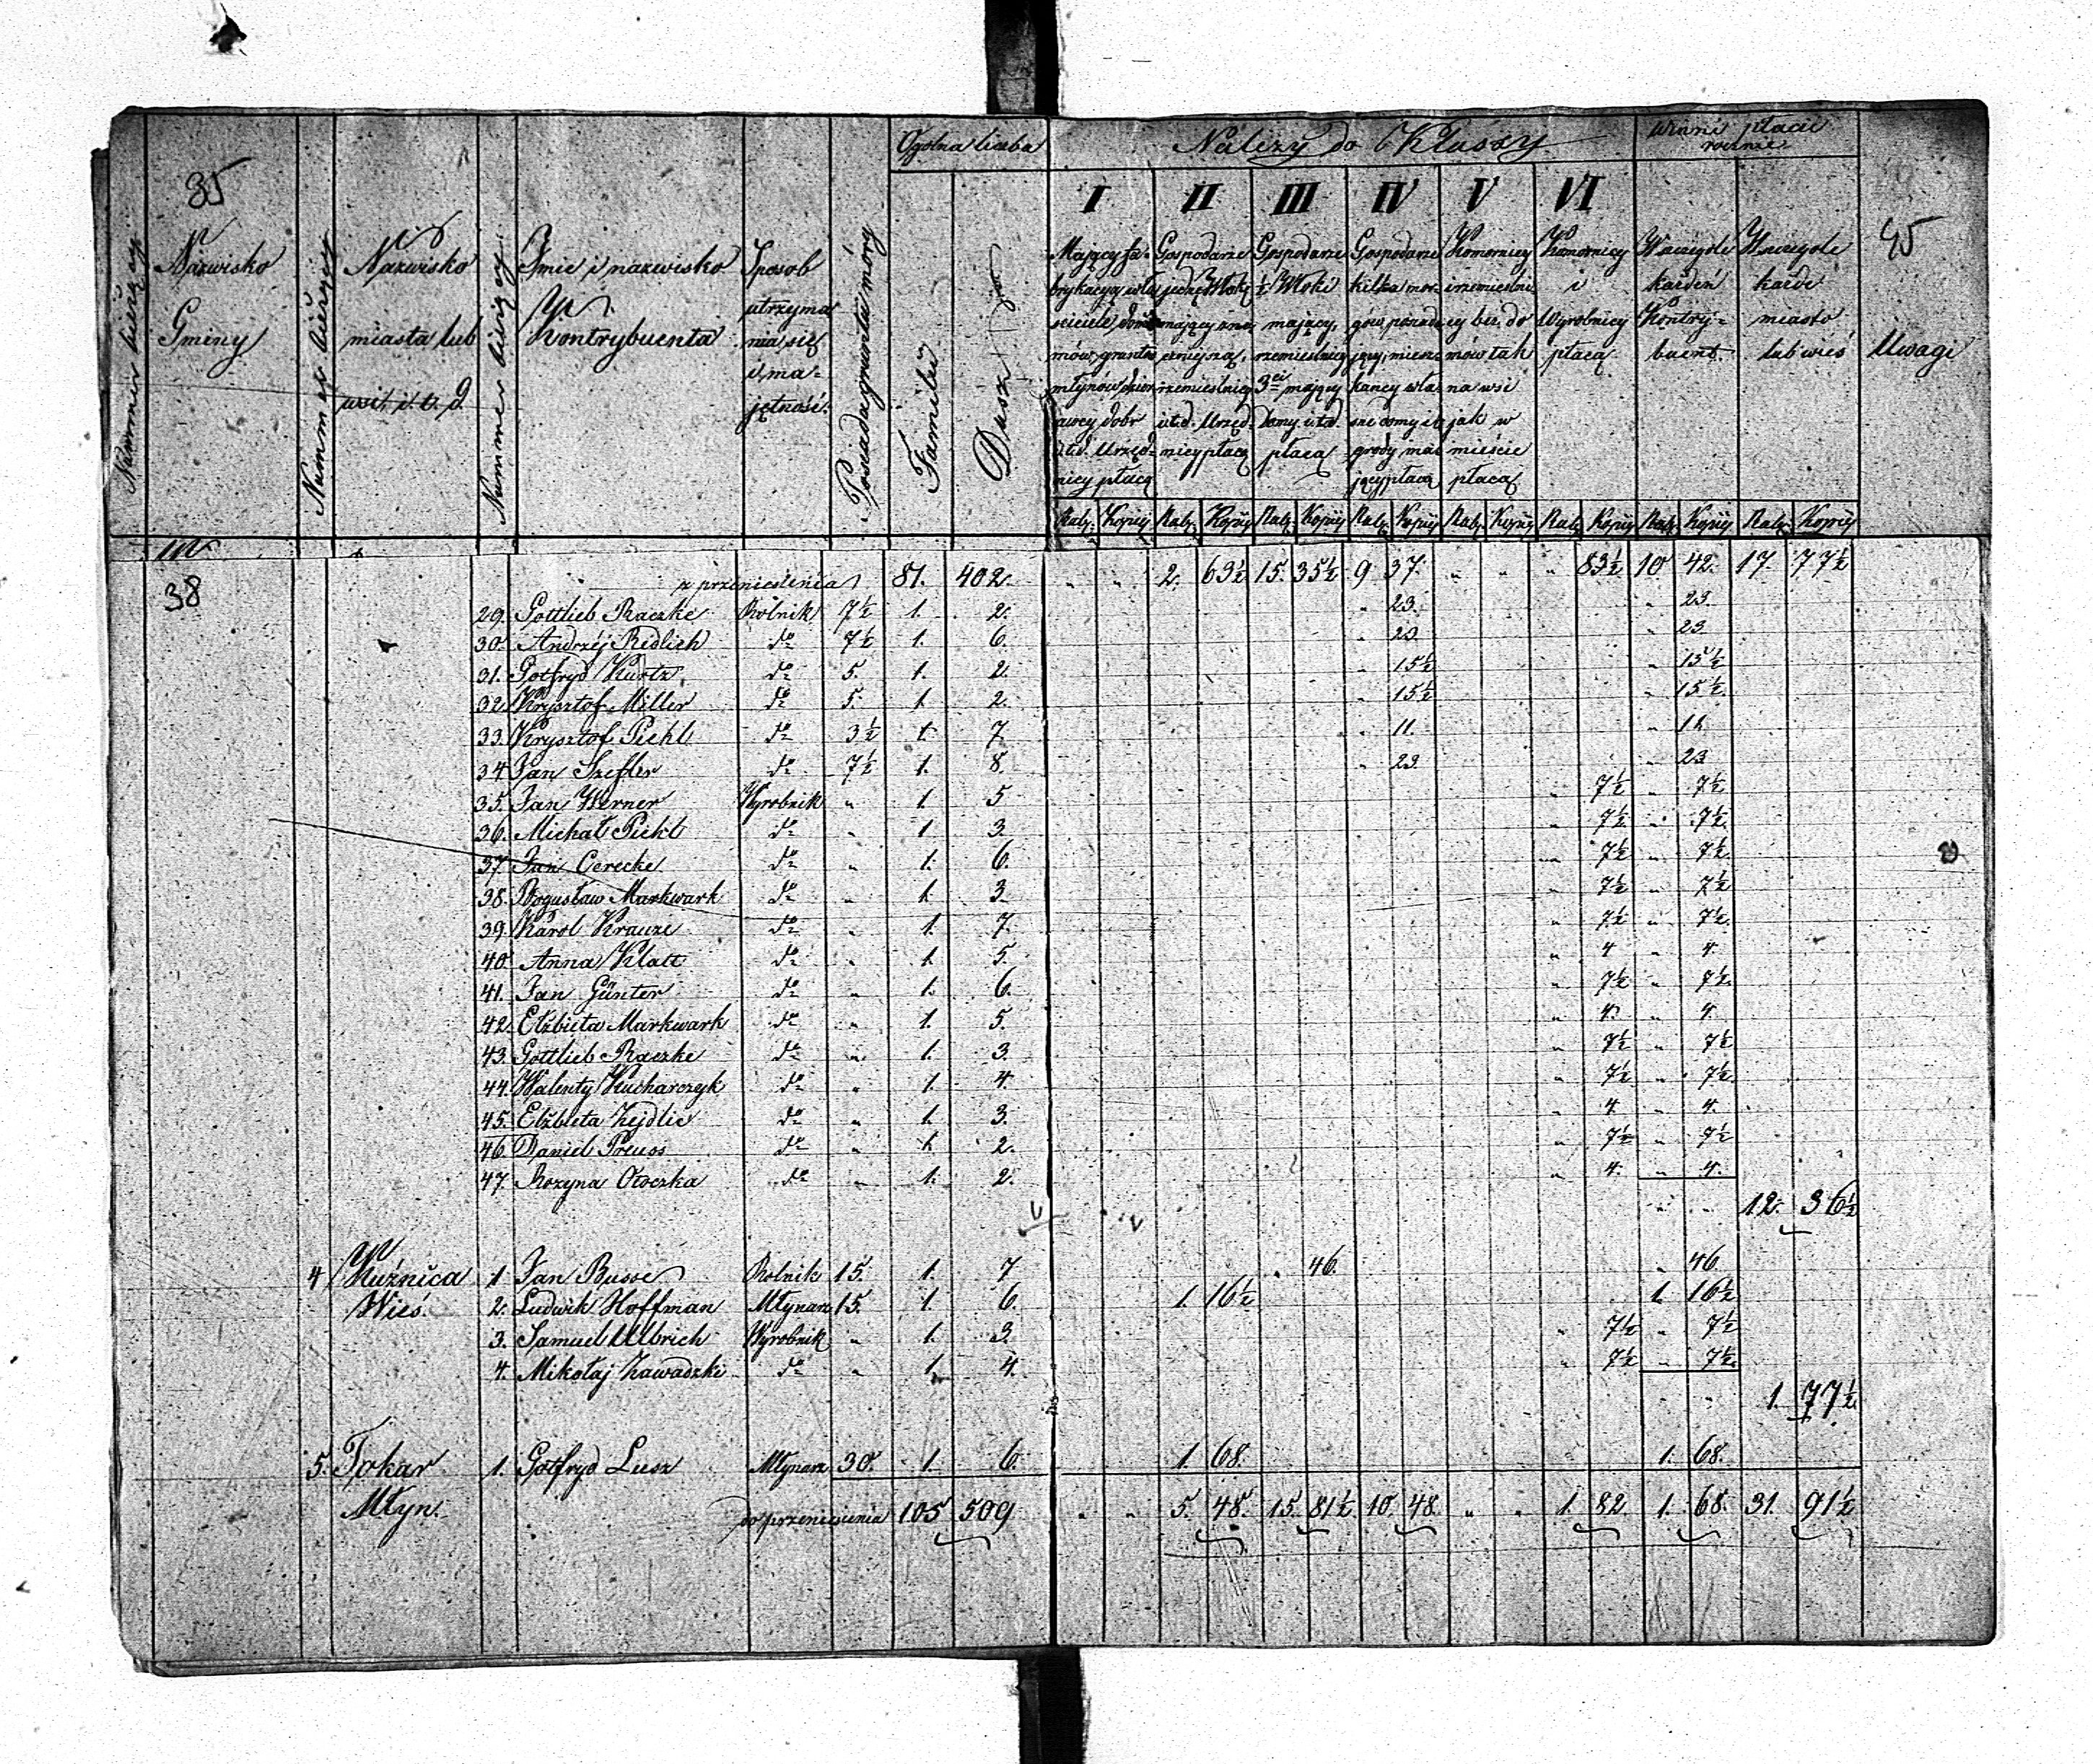 35
Ogólna liczba
Należy do Klassy
winni płacić
rocznie
45
I II III IV V VI
Nummer bieżący
Nazwisko
Gminy
Nummer bieżący
Nazwisko
miasta lub
wsi, i. t. d.
Nummer bieżący
Imie i nazwisko
Kontrybuenta
Sposob
utrzyma
nia się
i ma-
jętność.
Posiada gruntu mórg
Familii
Dusz
Mający fa-
brykacyą wła
ściciele domów
mów, gruntów
młynów, dzier
żawcy dobr
i t.d. Urzęd-
nicy płacą
Gospodarze
jedną Włokę
mający
rzemieslnicy
i t.d. Urzęd-
nicy płacą
Gospodarze
½ Włoki
mający,
rzemieslnicy
3ci mający
Domy i t.d.
płacą
Gospodarze
kilka mor-
gów posiada
jący, miesz
kancy wła
sne domy i t
grody ma
jący płacą
Komornicy
i rzemieslni
cy bez do
mów tak
na wsi
jak w
mieście
płacą
Komornicy
i
Wyrobnicy
płacą
W szczególe
każden
Kontry-
buent
W szczególe
każde
miasto
lub wieś
Uwagi
Rub. Kopiej Rub. Kopiej Rub. Kopiej Rub. Kopiej Rub. Kopiej Rub. Kopiej Rub. Kopiej Rub. Kopiej
38
z przeniesienia 81. 402. " " 2. 63½ 15. 35½ 9 37. " " " 83½ 10 42. 17. 77½
29. Gottlieb Raczke Rolnik 7½ 1. 2. " 23. " 23.
30. Andrzéj Redlich do 7½ 1. 6. " 23 " 23
31. Gotfryd Kurtz do 5. 1. 2. " 15½ " 15½
32. Krysztof Miller do 5. 1. 2. " 15½ " 15½
33. Krysztof Piehl do 3½ 1. 7 " 11. " 11.
34 Jan Szefler do 7½ 1. 8. " 23. " 23
35. Jan Werner Wyrobnik " 1. 5 " 7½ " 7½
36. Michał Piehl do " 1 3. " 7½ " 7½
37. Jan Cerecke do " 1. 6. " 7½ " 7½
38. Bogusław Markwark do " 1. 3. " 7½ " 7½
39. Karol Krauze do " 1. 7. " 7½ " 7½
40. Anna Klatt do " 1. 5. " 4 " 4.
41. Jan Günter do " 1. 6. " 7½ " 7½
42. Elżbieta Markwark do " 1. 5. " 4. " 4
43. Gottlieb Raczke do " 1. 3. " 7½ " 7½
44. Walenty Kucharczyk do " 1. 4. " 7½ " 7½
45. Elżbieta Zejdlic do " 1. 3. " 4 " 4.
46. Daniel Preuss do " 1. 2. " 7½ " 7½
47. Rozyna Otoczka do " 1. 2. " 4. " 4.
" " 12. 36½
4 Kuźnica 1. Jan Busse Rolnik 15. 1. 7 " 46. " 46.
Wieś. 2. Ludwik Hoffman Młynarz 15. 1. 6. 1. 16½ 1. 16½
3. Samuel Ulbrich Wyrobnik " 1. 3. " 7½ " 7½
4. Mikołaj Zawadzki do " 1. 4. " 7½ " 7½
" " 1. 77½
5. Tokar 1. Gotfryd Lusz Młynarz 30. 1. 6. 1. 68. 1. 68.
Młyn. do przeniesienia 105 509 " " 5. 48. 15. 81½ 10. 48. " " 1. 82. 1. 68. 31. 91½